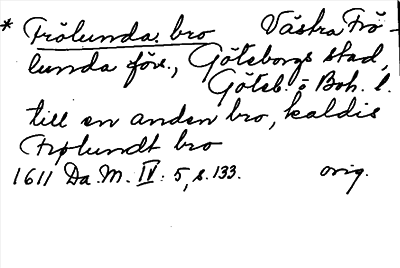 * Frölunda bro Västra Frö-
lunda förs., Göteborgs stad,
Göteb. o Boh. l.
till en anden bro, kaldis
Frølundt bro
1611 Da. M. IV: 5, s. 133. orig.